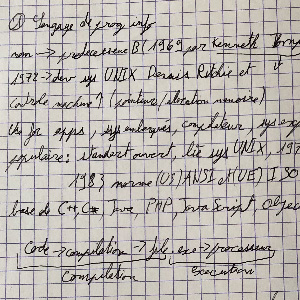 ① langage de prog info
nom → prédecesseur B (1969 par Kenneth Thomp
1972 → dev sys UNIX Dennis Ritchie et
Contrôle machine ↑ (pointeurs / allocation memoire)
Us for apps, sys embarqués, compilateur, sys exp
populaire: standart ouvert, lié sys UNIX, 197
1983 norme (US) ANSI et (UE) ISO
base de C++, C#, Java, PHP, JavaScript, Objec
Code → compilation → file exe → processeur
Compilation execution